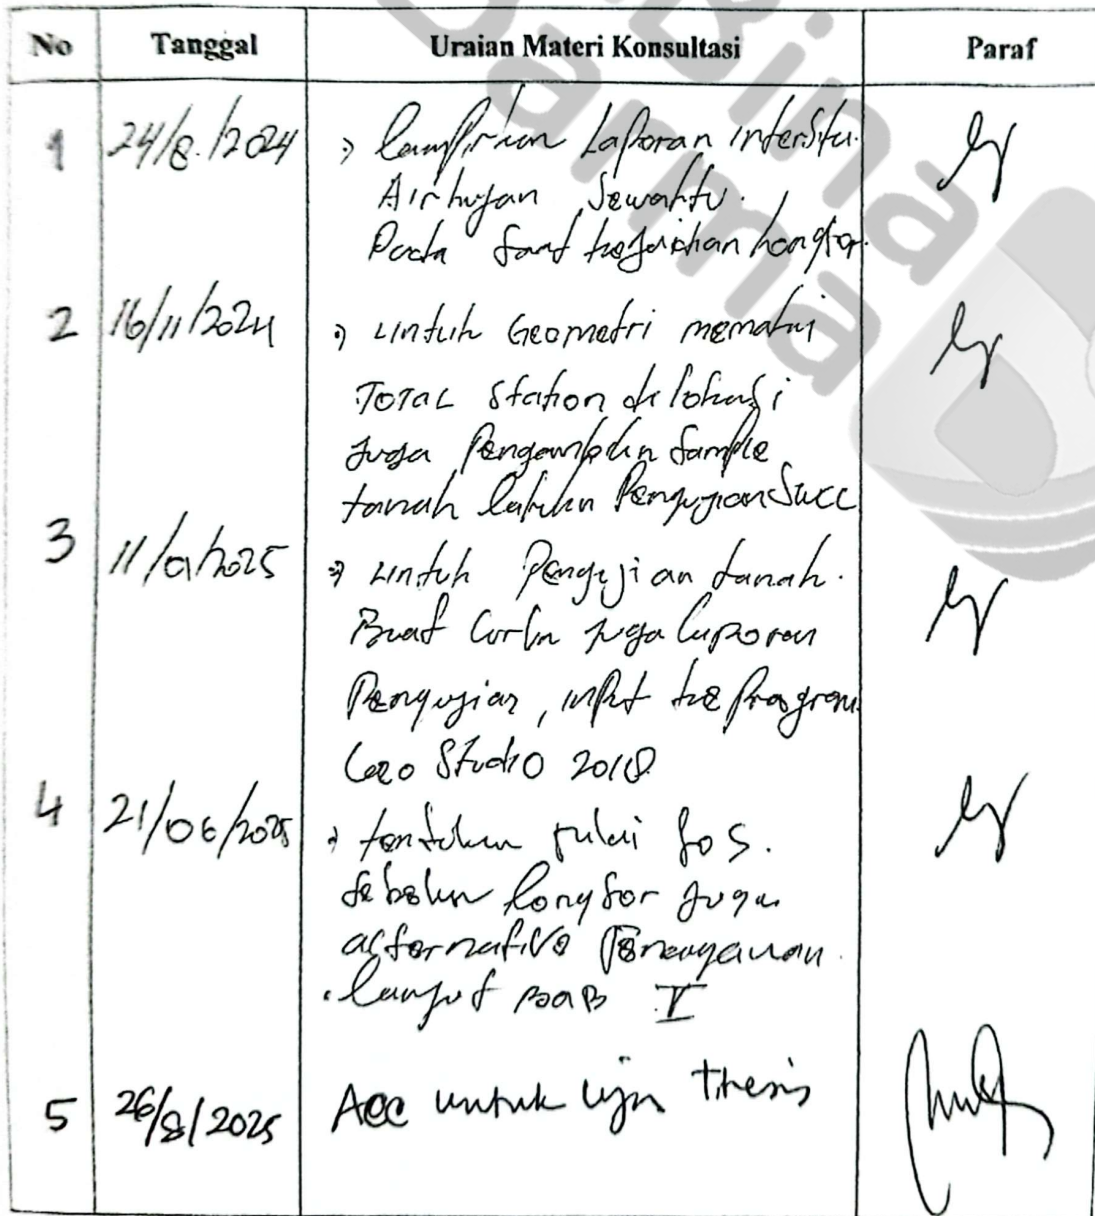 No Tanggal Uraian Materi Konsultasi Paraf
Bina
Darma
1 24/8/2024 Lampirkan Laporan intensitas
Air hujan Sewaktu.
Pada Saat kejadian longsor.
2 16/11/2024 untuk Geometri memakai
TOTAL Station di lokasi
Juga Pengambilan Sample
tanah lakukan Pengujian
3 11/01/2025 untuk Pengujian tanah.
Buat juga laporan
Pengujian, input ke Program
Geo Studio 2018
4 21/06/2025 tentukan nilai FoS.
Sebelum longsor Juga
alternative Penanganan.
lanjut BAB V
5 26/8/2025 Acc untuk Ujian Thesis